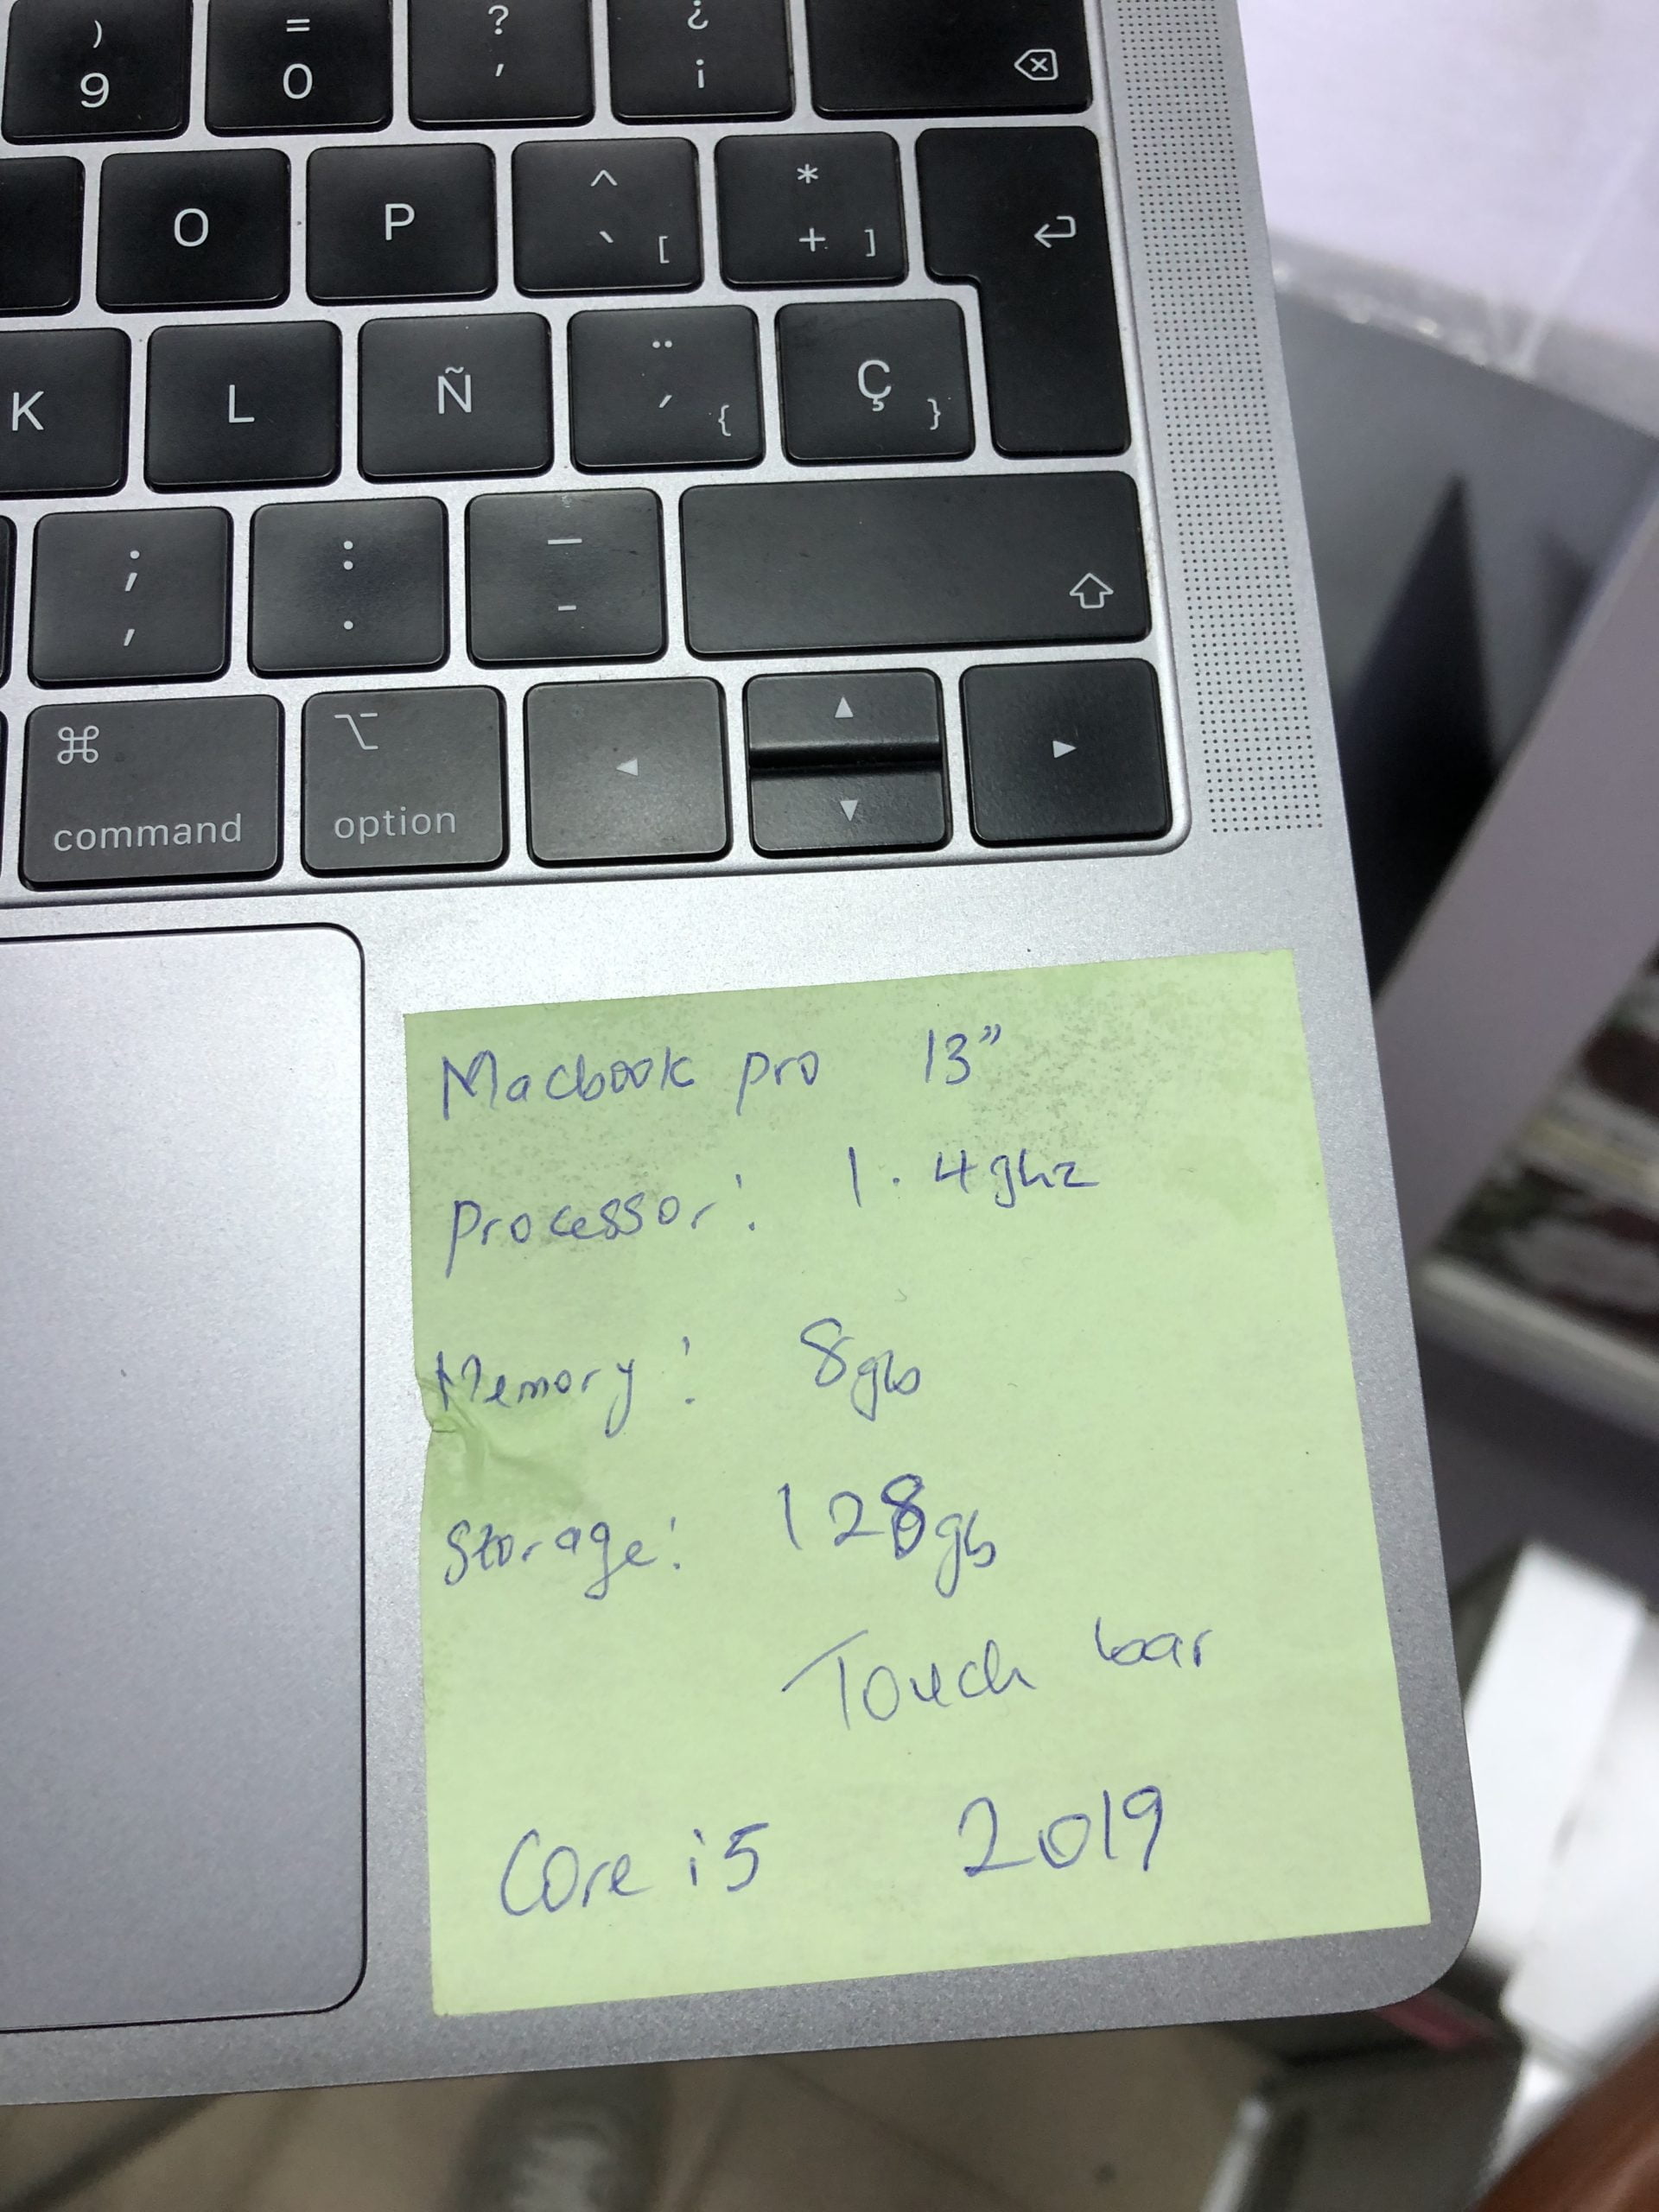 ) = ? ¿
9 0 ' ¡
O P ^ ` [ * + ]
K L Ñ ¨ ´ { Ç }
; , : . _ -
⌘ ⌥
command option
Macbook pro 13”
Processor: 1.4ghz
Memory: 8gb
Storage: 128gb
Touch bar
Core i5 2019